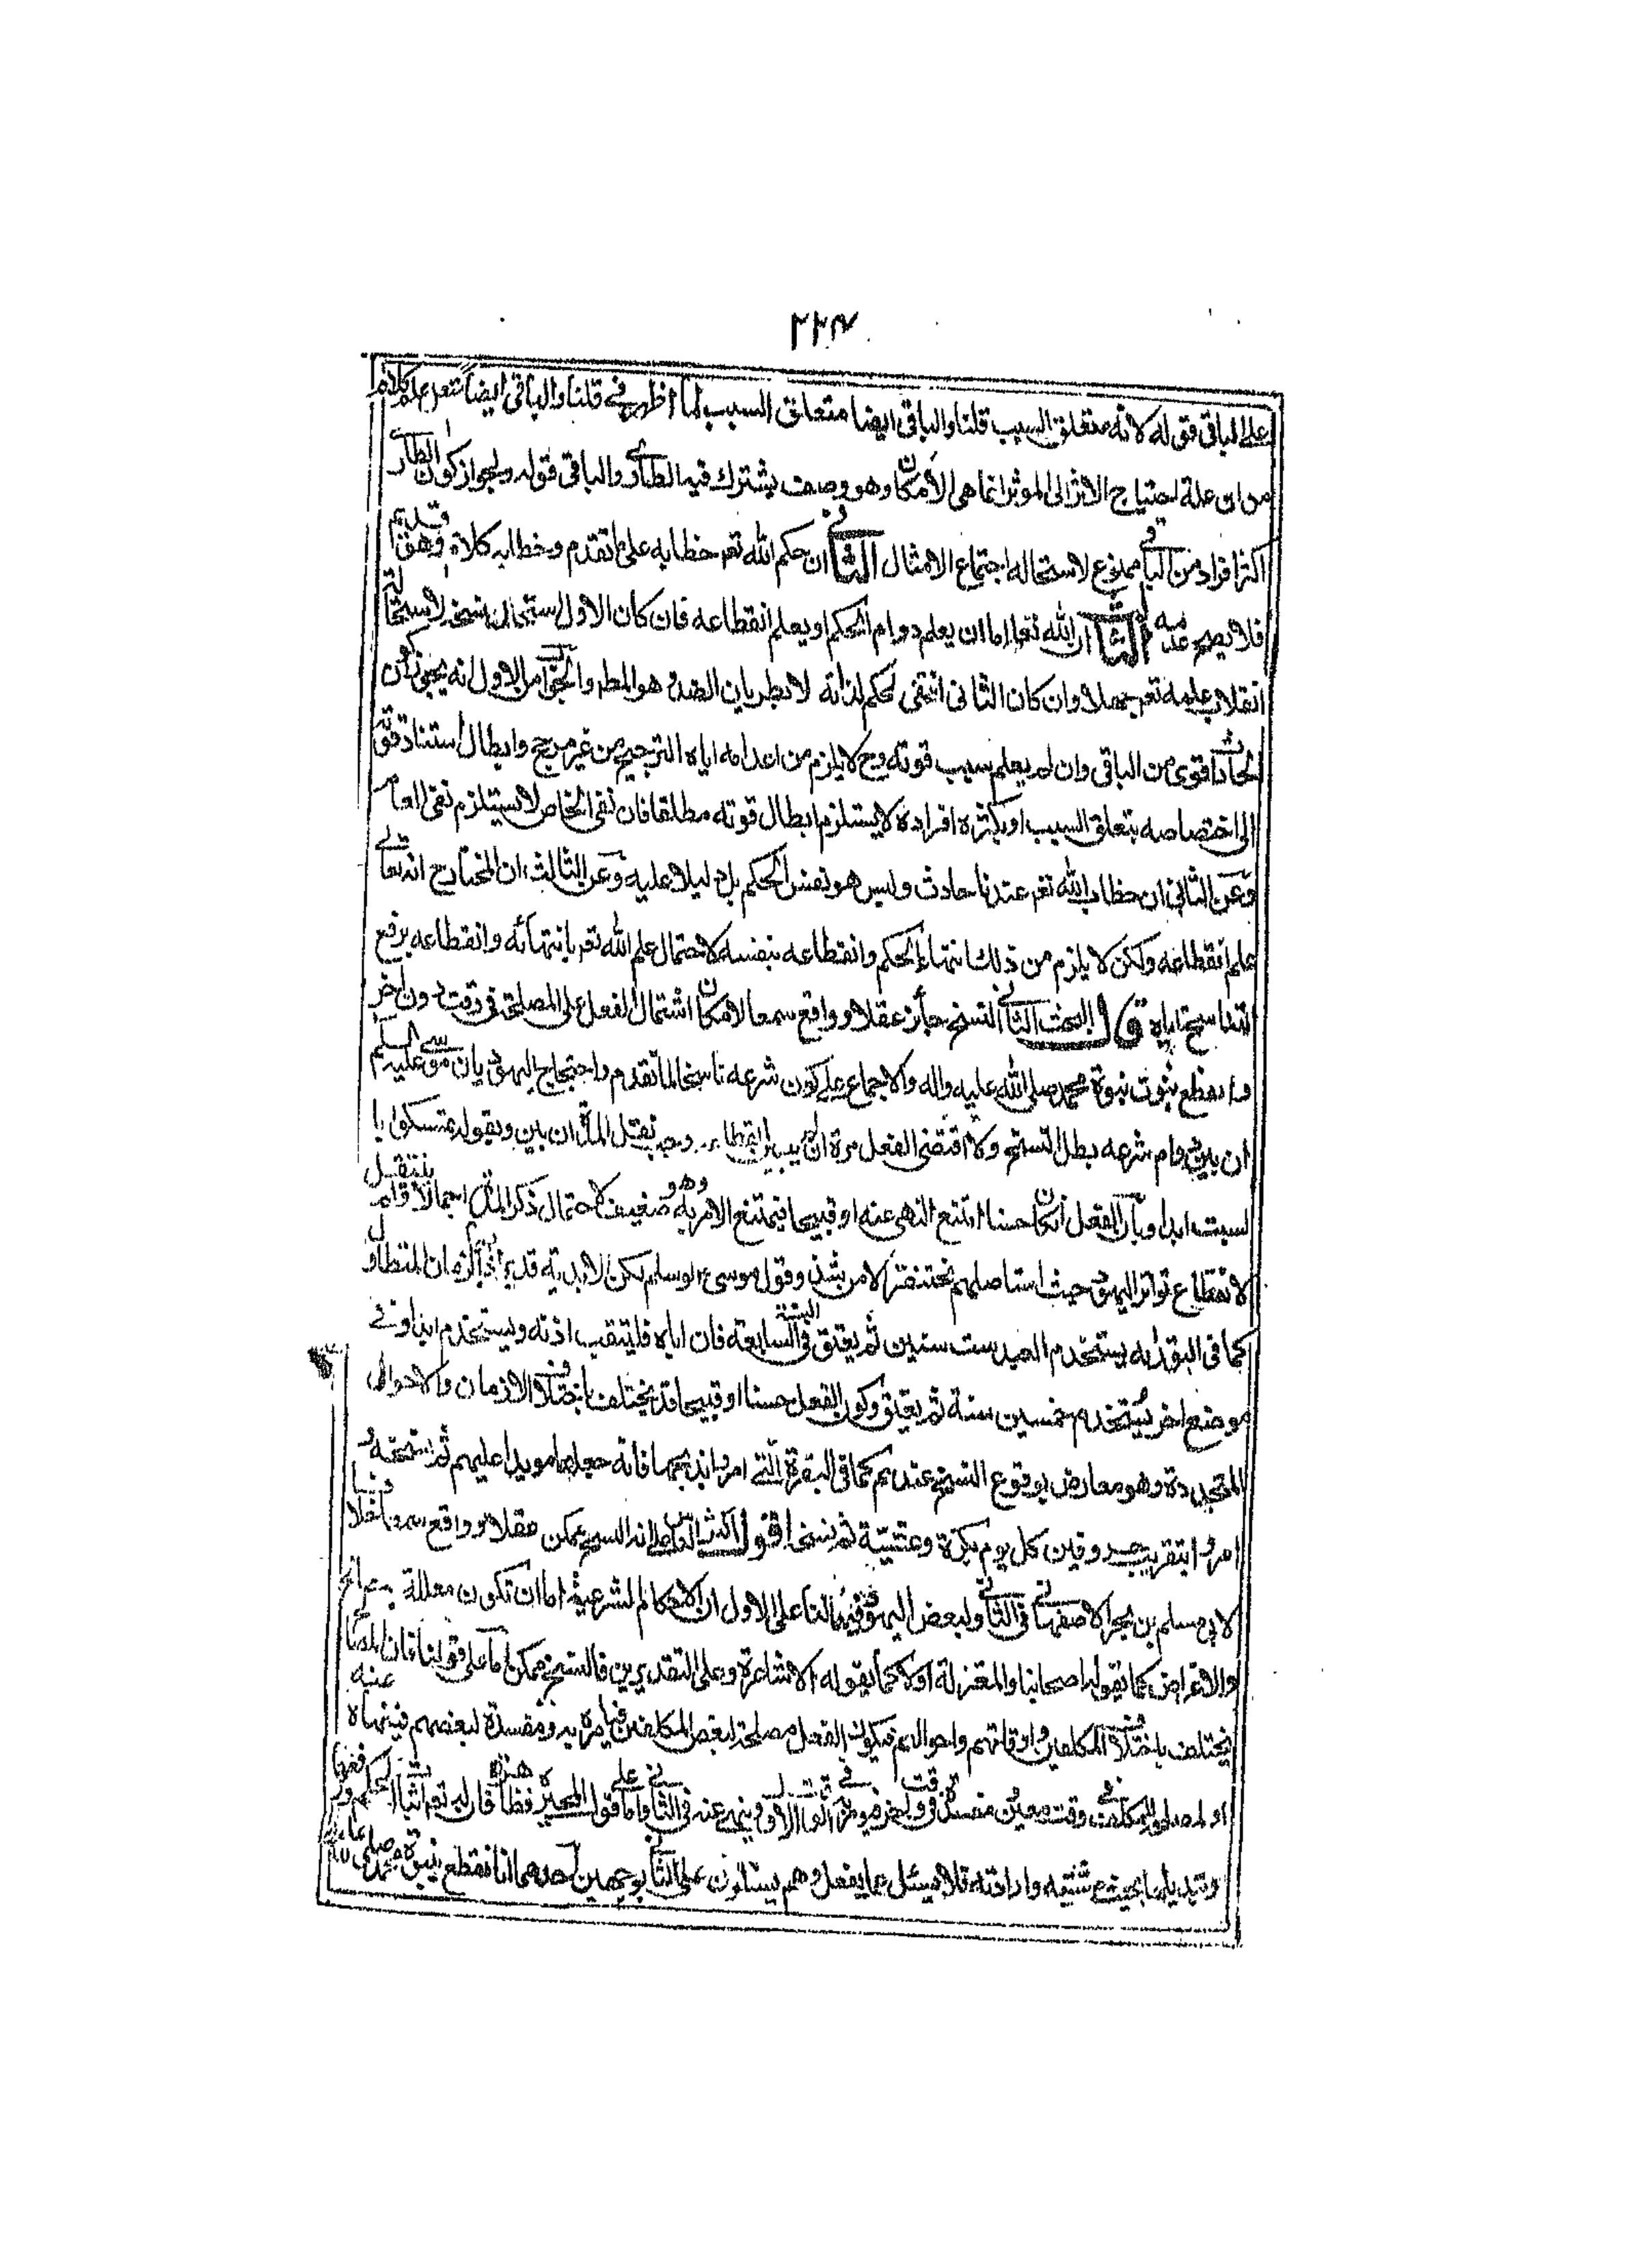 ٢٢٣
على الباقي فقوله لانه متعلق السبب قلنا والباقي ايضا متعلق السبب لما ظهر في قلنا والباقي ايضا
من ان علة احتياج الاثر الى المؤثر انما هي الامكان وهو وصف يشترك فيه الطارى والباقي قوله ولجواز كون الطارى
اكثر افراد من الباقي ممنوع لاستحالة اجتماع الامثال الثاني ان حكم الله تعم خطابه على ما تقدم وخطابه كلامه وهو قديم
فلا يصح عدمه الثالث ان الله تعا اما ان يعلم دوام الحكم او يعلم انقطاعه فان كان الاول استحال نسخه لاستحالة
انقلاب علمه تعم جهلا وان كان الثاني انتهى الحكم لذاته لا بطريان الضد وهو المط والجواب عن الاول انه يجوز كون
الحادث اقوى من الباقي وان لم يعلم سبب قوته وح لا يلزم من اعدامه اياه الترجيح من غير مرجح وابطال استناد قوته
الى اختصاصه بتعلق السبب او بكثرة افراده لا يستلزم ابطال قوته مطلقا فان نفى الخاص لا يستلزم نفى العام
وعن الثاني ان خطاب الله تعم عندنا حادث وليس هو نفس الحكم بل دليلا عليه وعن الثالث ان المختار ح انه تعالى
علم انقطاعه ولكن لا يلزم من ذلك انتهاء الحكم وانقطاعه بنفسه لاحتمال علم الله تعم بانتهائه وانقطاعه برفع
الناسخ اياه قال البحث الثاني النسخ جائز عقلا وواقع سمعا لامكان اشتمال الفعل على المصلحة في وقت دون اخر
وانقطع بثبوت نبوة محمد صلى الله عليه واله والاجماع على كون شرعه ناسخا لما تقدم واحتجاج اليهود بان موسى عليه السلم
ان بين دوام شرعه بطل النسخ والا اقتضى الفعل مرة ان بين انقطاعه وجب نقل المدة ان بين وبقوله تمسكوا با
لسبت ابدا وبان الفعل ان كان حسنا امتنع النهى عنه او قبيحا فيمتنع الامر به وهو ضعيف لاحتمال ذكر المدة اجمالا فلم ينتقل
لانقطاع تواتر اليهود حيث استاصلهم بختنصر الا من شذ وقول موسى لو سلم لكن الابدية قد يراد بها الزمان المتطاول
كما في التورية يستخدم العبد ست سنين ثم يعتق في السابعة فان اباه فليثقب اذنه ويستخدم ابدا وفي
موضع اخر يستخدم خمسين سنة ثم يعتق وكون الفعل حسنا او قبيحا قد يختلف باختلاف الازمان والاحوال
المتجددة وهو معارض بوقوع النسخ عندهم كما في البقرة التي امروا بذبحها فانه جعلها مؤبدا عليهم ثم نسخه و
امروا بتقريب خروفين كل يوم بكرة وعشية ثم نسخ اقول اكثر الناس على ان النسخ ممكن عقلا وواقع سمعا خلافا
لابي مسلم بن بحر الاصفهاني في الثاني ولبعض اليهود فيهما لنا على الاول ان الاحكام الشرعية اما ان تكون معللة بالمصالح
والاغراض كما تقوله اصحابنا والمعتزلة او لا كما يقوله الاشاعرة وعلى التقديرين فالنسخ ممكن اما على قولنا فان المصالح
تختلف باختلاف المكلفين واوقاتهم واحوالهم فيكون الفعل مصلحة لبعض المكلفين فيامره به ومفسدة لبعضهم فينهاه عنه
او لمصلحة للمكلف في وقت معين مفسدة في وقت اخر فيؤمر به في الاول وينهى عنه في الثاني واما على قول المجبرة فظاهر فان له تعم اثبات الحكم ورفعها
وتبديلها بحسب مشيته وارادته فلا يسئل عما يفعل وهم يسئلون وعلى الثاني بوجهين احدهما انا نقطع بنبوة محمد صلى الله عليه